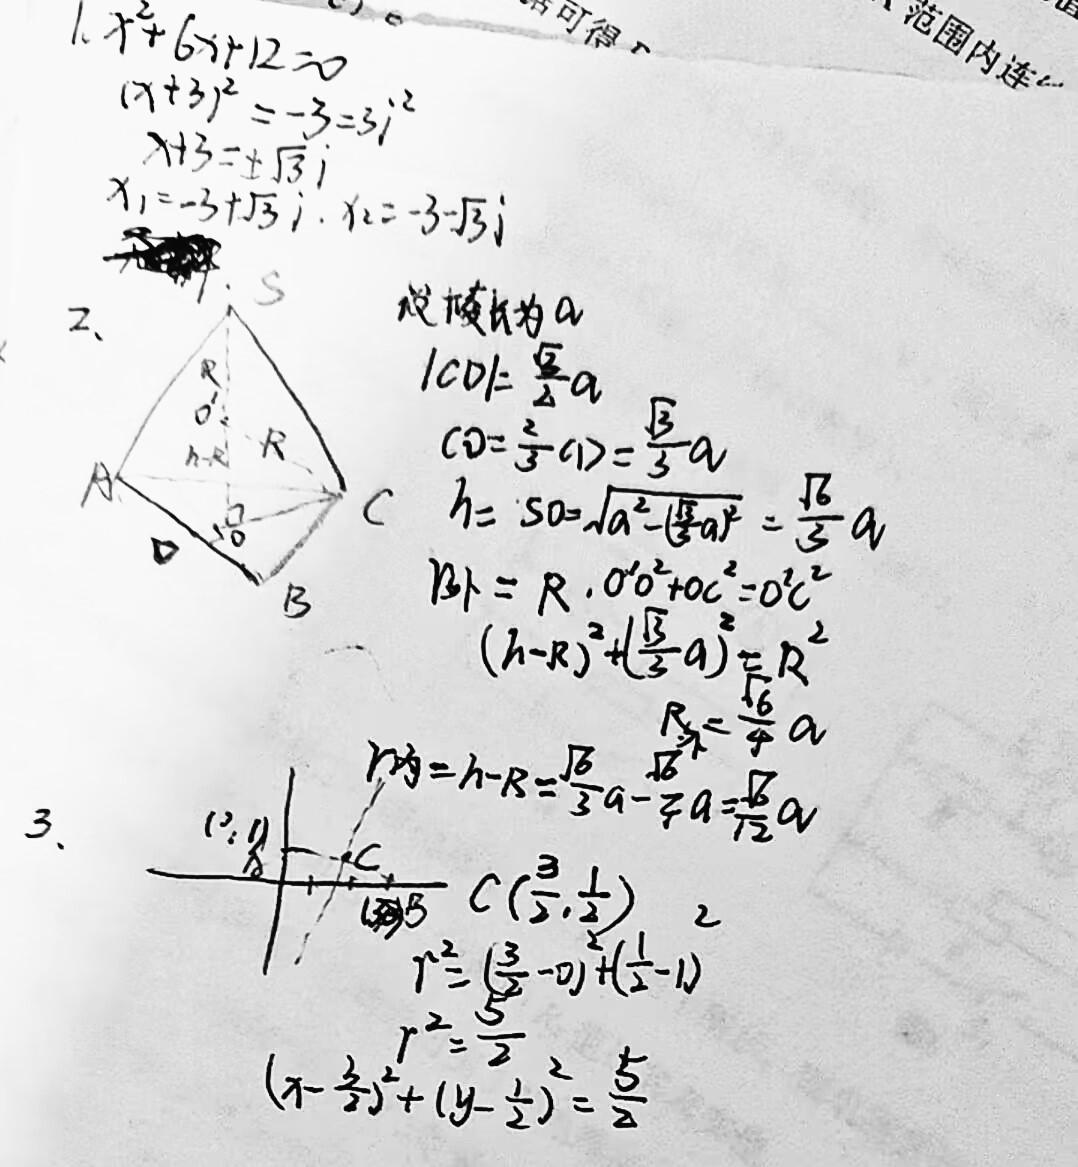 路可得
范围内连
1. x²+6x+12=0
(x+3)²=-3=3i²
x+3=±√3i
x₁=-3+√3i. x₂=-3-√3i
2、
S
R
O'
h-R
R
A
C
O
D
B
设棱长为a
|CD|=√3/2 a
CO=2/3 CD=√3/3 a
h=SO=√(a²-(√3/3 a)²)=√6/3 a
R外=R. O'O²+OC²=O'C²
(h-R)²+(√3/3 a)²=R²
R外=√6/4 a
r内=h-R=√6/3 a-√6/4 a=√6/12 a
3、
A
C
B
C(3/2,1/2)
r²=(3/2-0)²+(1/2-1)²
r²=5/2
(x-3/2)²+(y-1/2)²=5/2